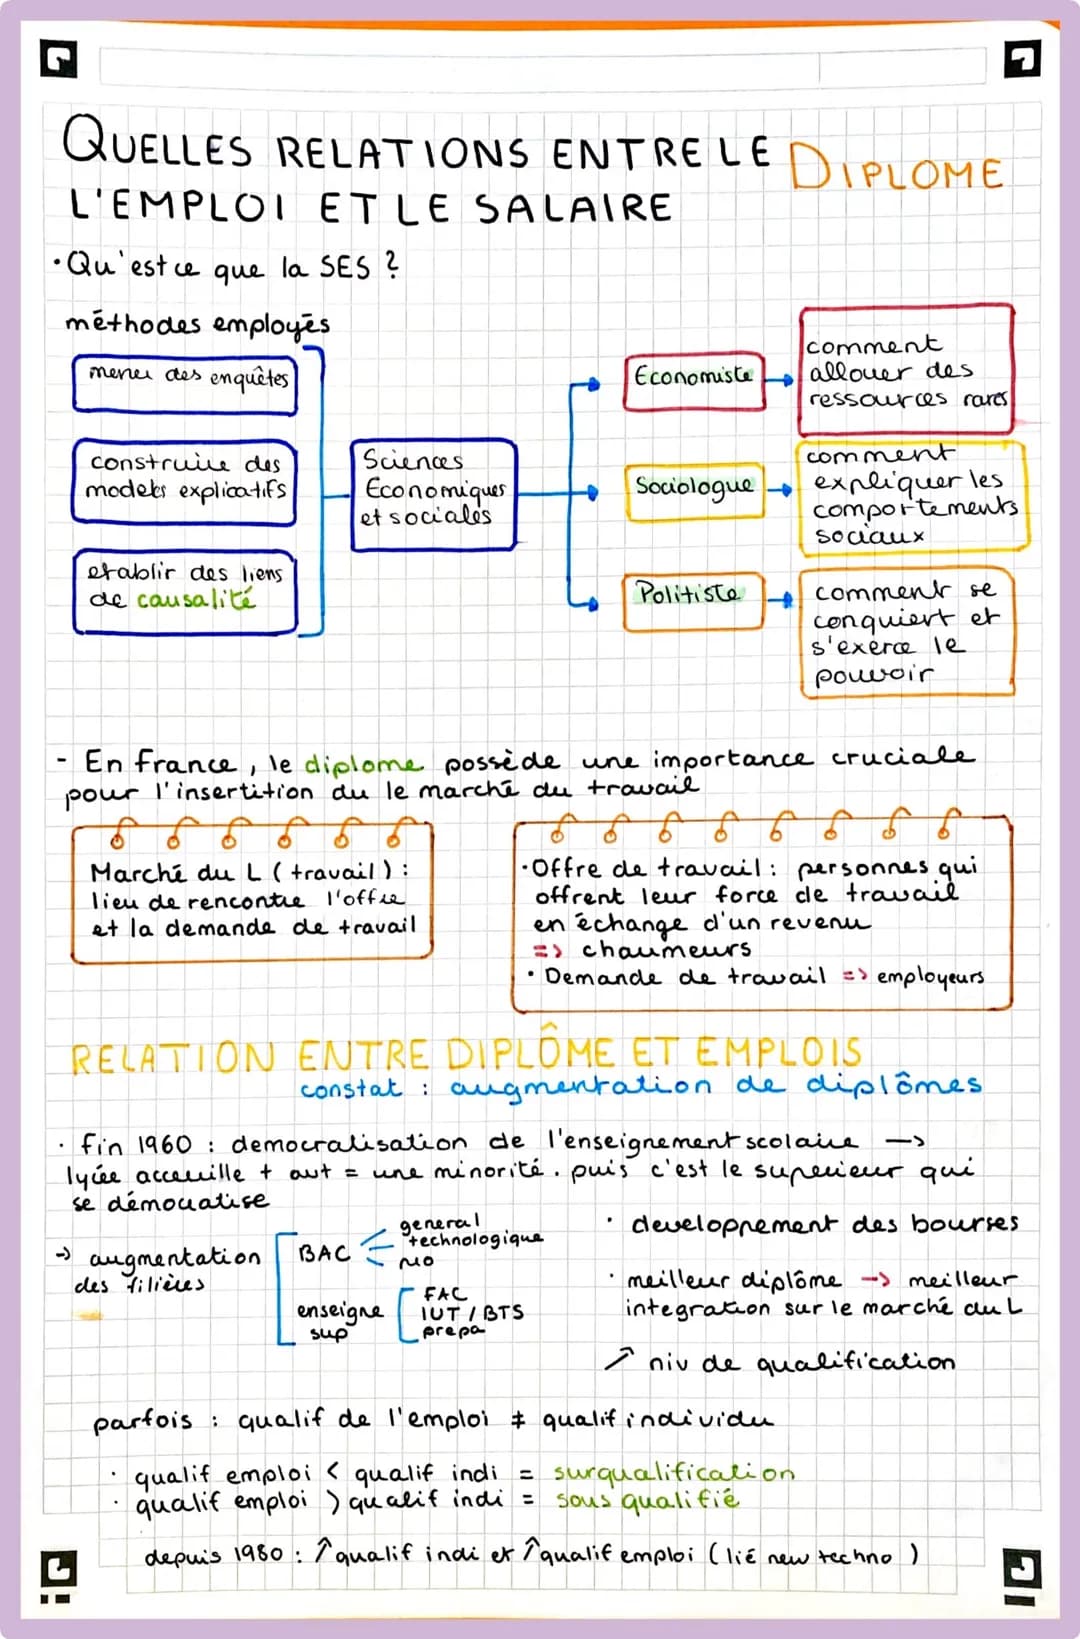 QUELLES RELATIONS ENTRE LE DIPLOME
L'EMPLOI ET LE SALAIRE
• Qu'est ce que la SES ?
méthodes employés
mener des enquêtes
construire des
modeles explicatifs
etablir des liens
de causalité
Sciences
Economiques
et sociales
Economiste
comment
allouer des
ressources rares
Sociologue
comment
expliquer les
comportements
sociaux
Politiste
comment se
conquiert et
s'exerce le
pouvoir
- En france, le diplome possède une importance cruciale
pour l'insertition du le marché du travail
Marché du L (travail) :
lieu de rencontre l'offre
et la demande de travail
• Offre de travail : personnes qui
offrent leur force de travail
en échange d'un revenu
=> chaumeurs
• Demande de travail => employeurs
RELATION ENTRE DIPLÔME ET EMPLOIS
constat : augmentation de diplômes
• fin 1960 : democratisation de l'enseignement scolaire ->
lycée acceuille + aut = une minorité. puis c'est le superieur qui
se démocratise
-> augmentation
des filières
BAC
general
technologique
pro
enseigne
sup
FAC
IUT / BTS
prepa
• developprement des bourses
• meilleur diplôme -> meilleur
integration sur le marché du L
↗ niv de qualification
parfois : qualif de l'emploi ≠ qualif individu
• qualif emploi < qualif indi = surqualification
• qualif emploi > qualif indi = sous qualifié
depuis 1980 : ↑ qualif indi et ↑ qualif emploi (lié new techno)